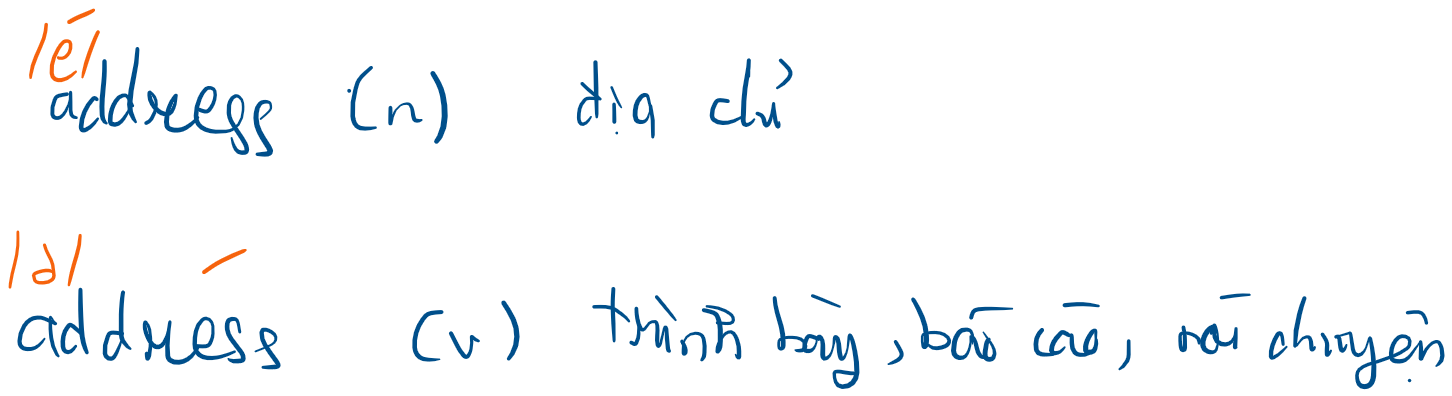 /é/
address (n) địa chỉ
/ə/
address (v) trình bày, báo cáo, nói chuyện